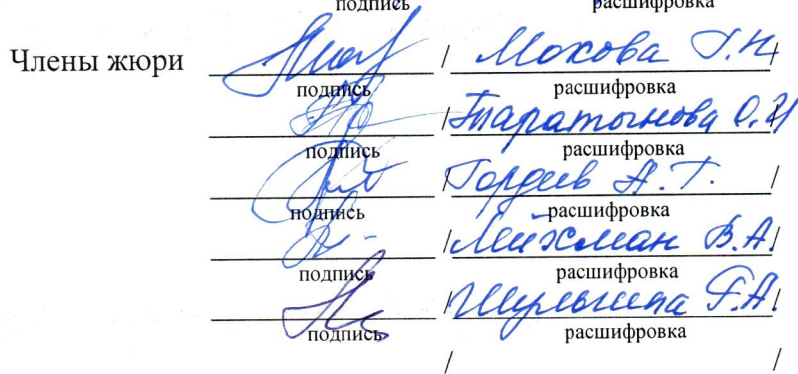 подпись расшифровка
Члены жюри / Мохова Г.Н/
подпись расшифровка
/Таратынова О.И/
подпись расшифровка
/Гордеев А.Т. /
подпись расшифровка
/Лейхман В.А./
подпись расшифровка
/Шульгина Г.А./
подпись расшифровка
/ /